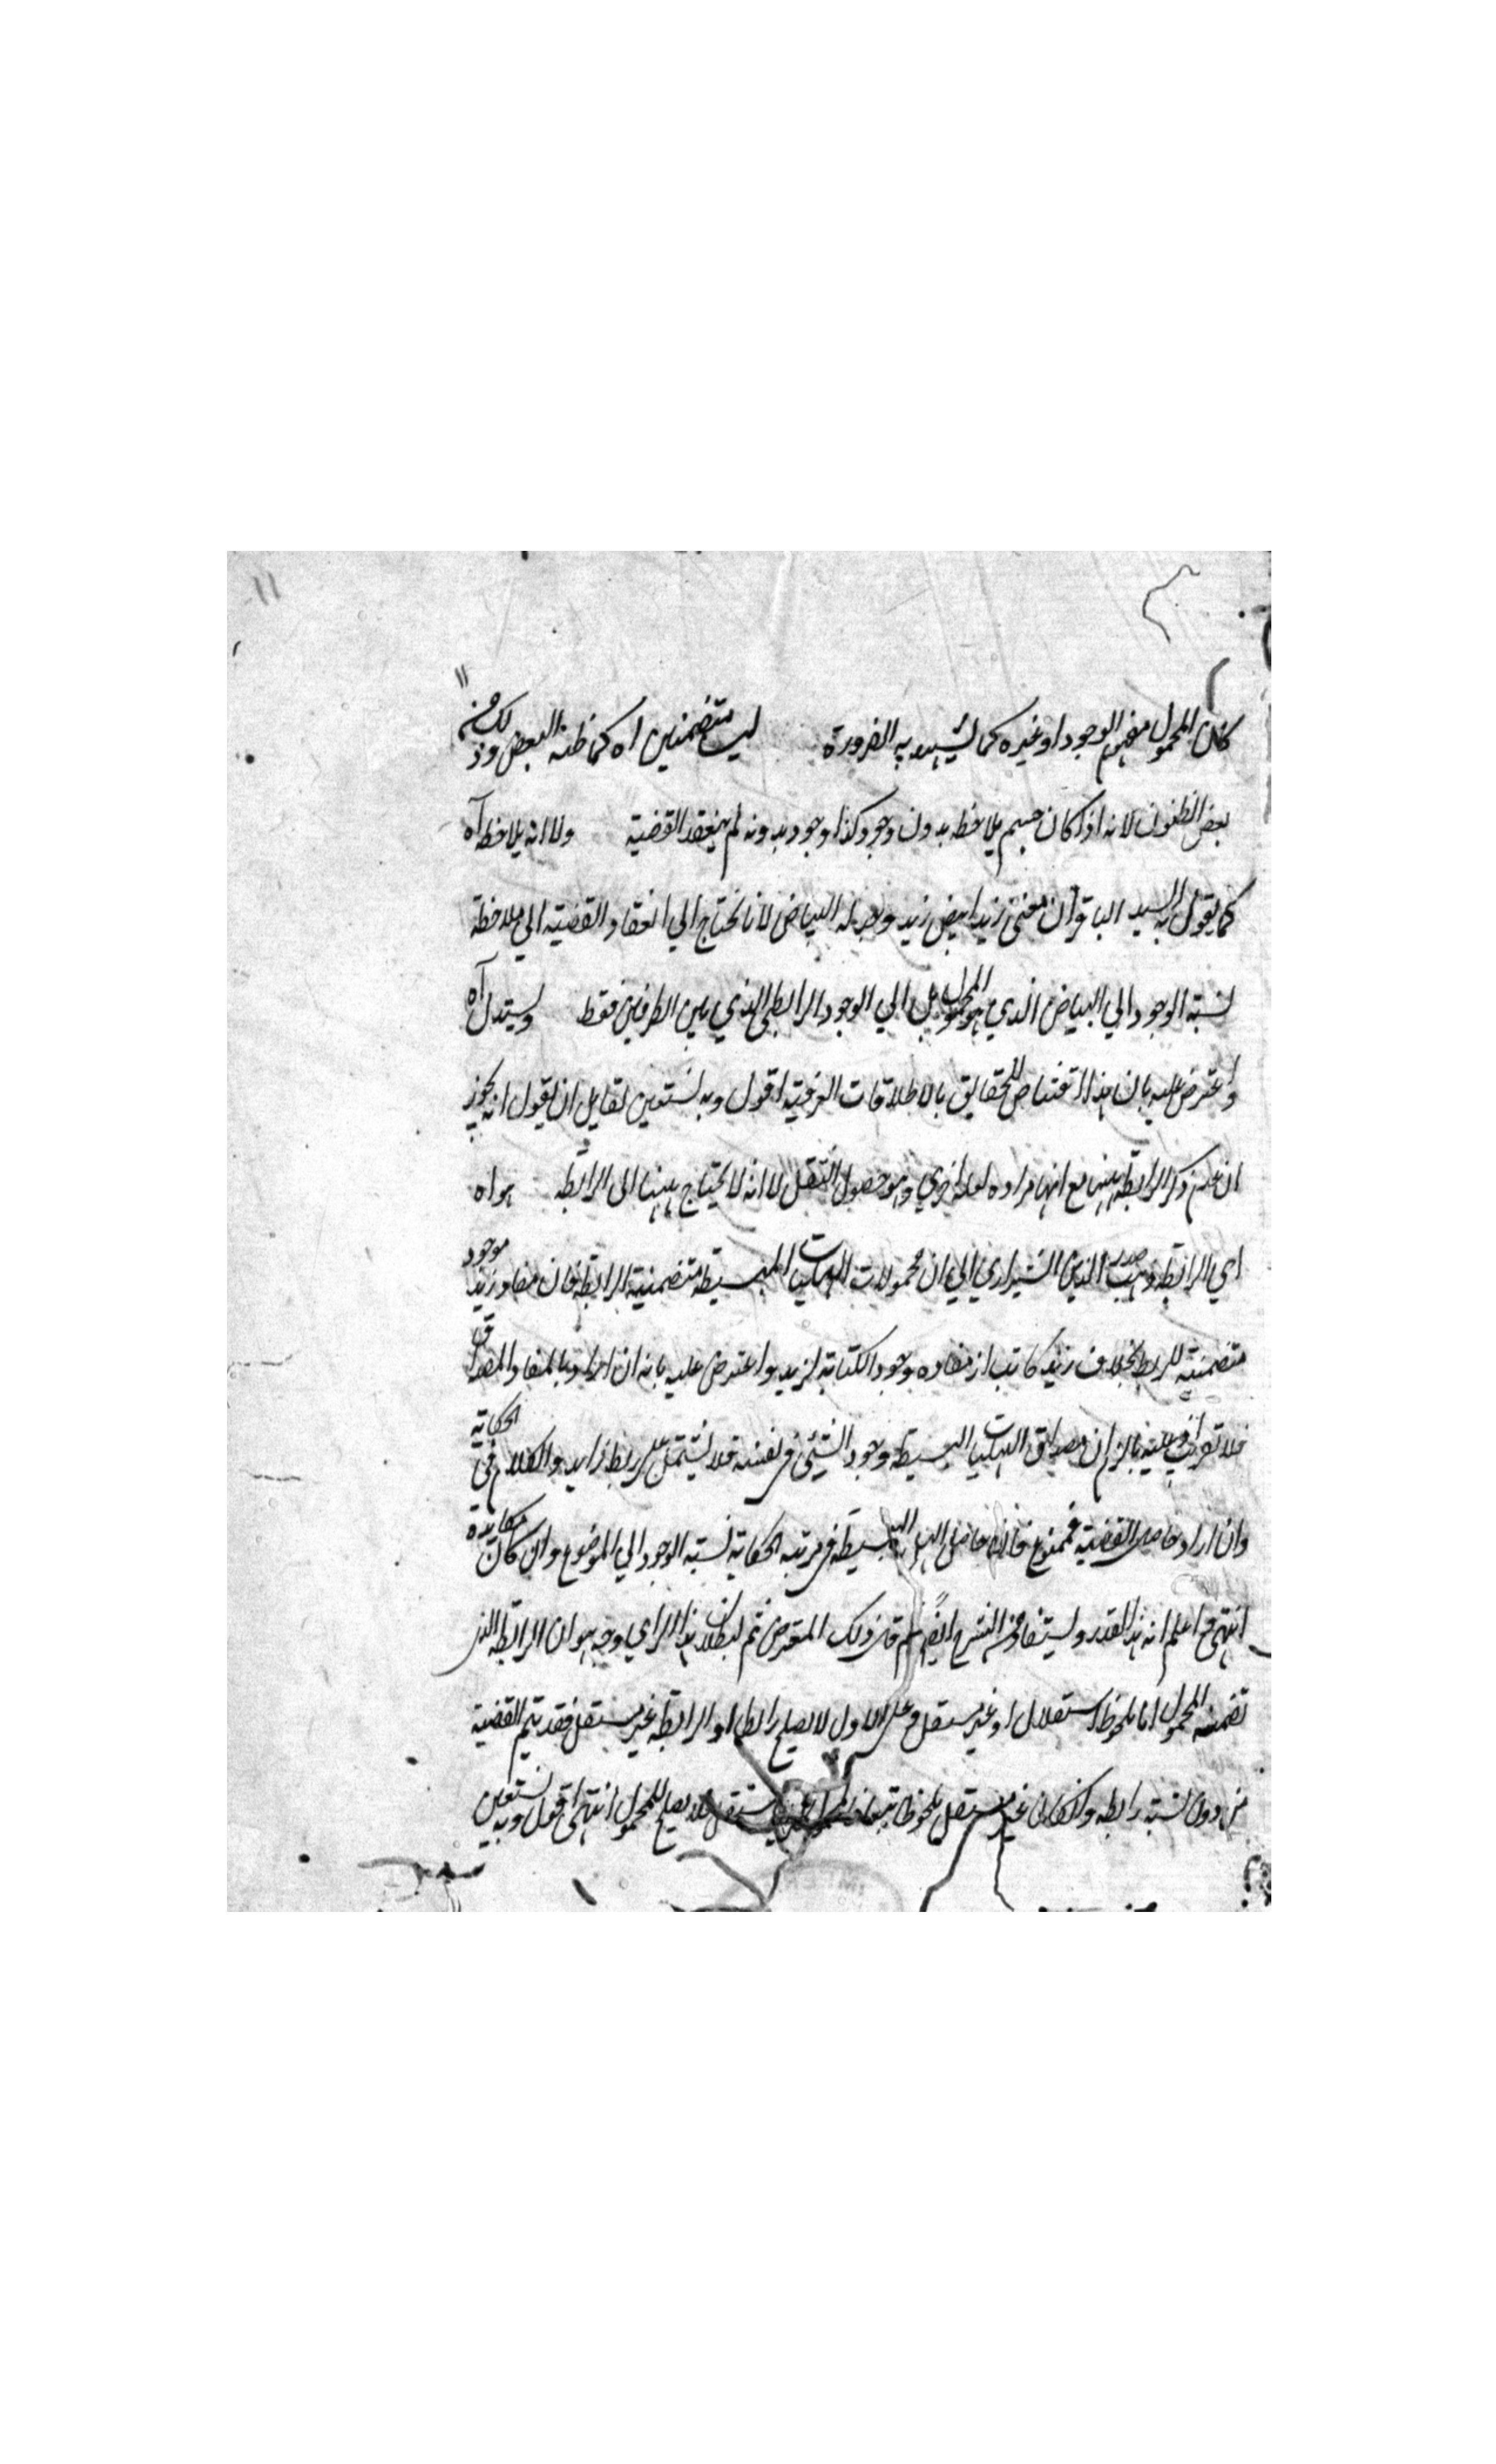 ١١
كان المحمول مفهوم الوجود او غيره كما يشهد به الضرورة ليست متضمنين اه كما ظنه البعض وذلك من
بعض الظنون لانه اذا كان جسم يلاحظ بدون وجود كذا وجود بدونه لم ينعقد القضية ولا انه يلاحظ اه
كما يقول به السيد الباقر ان معنى زيد ابيض زيد وجد له البياض لانا نحتاج الي انعقاد القضية الي ملاحظة
نسبة الوجود الي البياض الذي هو المحمول بل الي الوجود الرابطي الذي بين الطرفين فقط ويستدل اه
واعترض عليه بان هذا اقتناص الحقايق بالاطلاقات العرفية اقول وبه نستعين لقايل ان يقول انه يجوز
ان عدم ذكر الرابطة ههنا مع انها مرادة لعلة اخري وهو حصول الثقل لا انه لا يحتاج ههنا الى الرابطة هو اه
اي الرابطة وذهب صدر الدين الشيرازي الي ان محمولات الهليات البسيطة متضمنة الرابطة فان مفاد زيد موجود
متضمنة للربط بخلاف زيد كاتب اذ مفاده وجود الكتابة لزيد واعترض عليه بانه ان اراد بالمفاد المصداق
فلا تعرض مصداق الهليات البسيطة وجود الشئ في نفسه فلا يشتمل على ربط زايد والكلام في الحكاية
وان اراد حاصل القضية فممنوع فان حاصل البسيطة في مرتبة الحكاية نسبة الوجود الي الموضوع وان كان مكابرة
انتهى اعلم انه هذا القدر وليستفاد من الشرح ايضا ذلك المعترض ثم لبطلان هذا الراي وجه هو ان الرابطة الذي
تضمنه المحمول اما ملحوظ استقلالا او غير مستقل وعلى الاول لا يصلح رابطا او الرابطة غير مستقل فقد يتم القضية
من دون نسبة رابطة وان كان غير مستقل ملحوظا تبعا مستقل فلا يصلح للمحمول انتهى اقول وبه نستعين